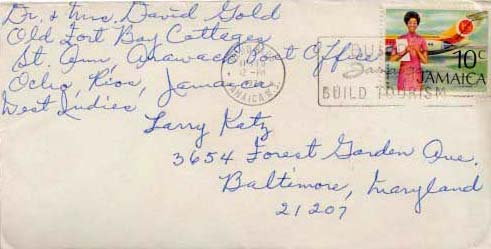 Dr. & Mrs. David Gold
Old Fort Bay Cottages
St. Ann, Arawack Post Office
Ocho, Rios, Jamaica
West Indies
10c
JAMAICA
BUILD TOURISM
Larry Katz
3654 Forest Garden Ave.
Baltimore, Maryland
21207